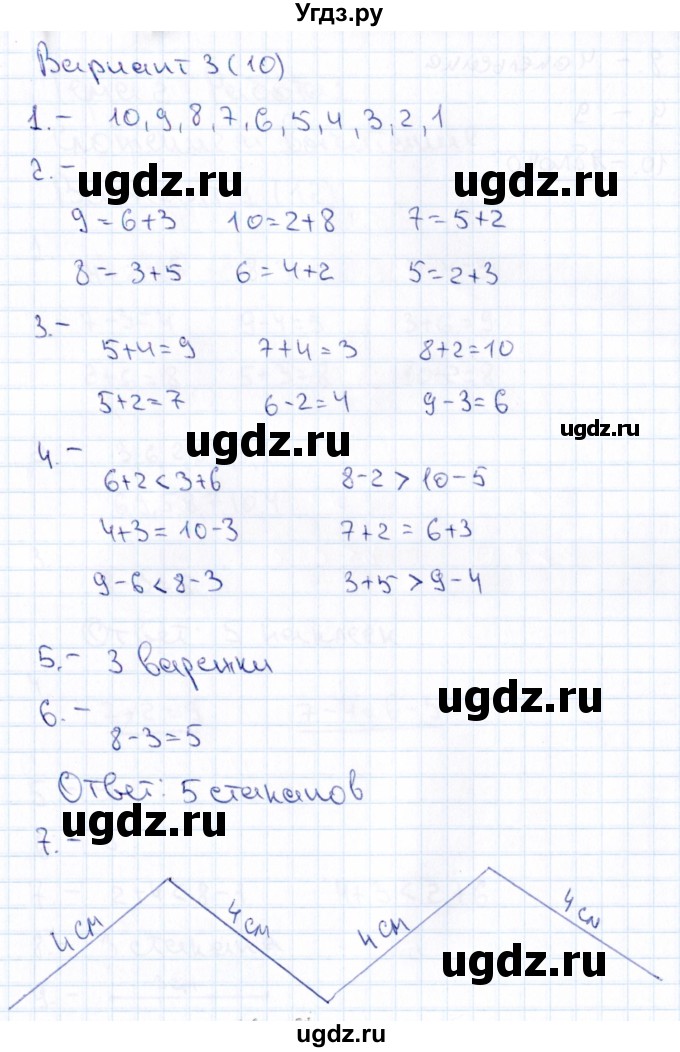 Угдз.ру
Вариант 3 (10)
1.- 10, 9, 8, 7, 6, 5, 4, 3, 2, 1
2.-
ugdz.ru ugdz.ru
9=6+3 10=2+8 7=5+2
8=3+5 6=4+2 5=2+3
3.-
5+4=9 7+4=3 8+2=10
5+2=7 6-2=4 9-3=6
ugdz.ru ugdz.ru
4.-
6+2<3+6 8-2>10-5
4+3=10-3 7+2=6+3
9-6<8-3 3+5>9-4
5.- 3 варежки
ugdz.ru
6.-
8-3=5
Ответ: 5 стаканов
ugdz.ru
7.-
4 см 4 см 4 см 4 см
ugdz.ru
ugdz.ru